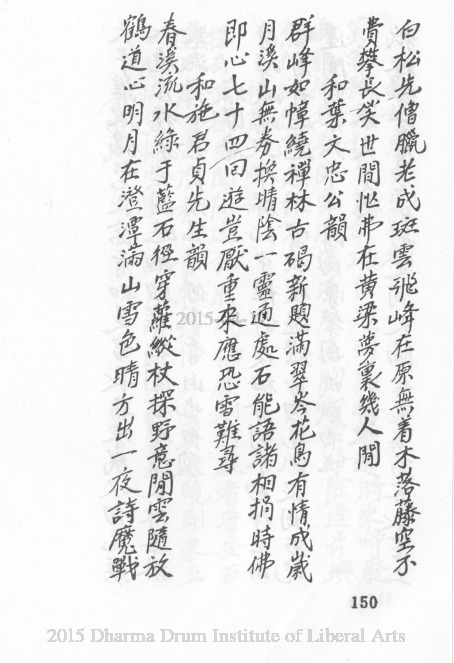 白松先僧臘老成斑雲飛峰在原無着木落藤空不
費攀長笑世間怹弗在黄粱夢裏幾人閒
和葉文忠公韻
群峰如幛繞禪林古碣新題滿翠岑花鳥有情成歲
月溪山無券換晴陰一靈通處石能語諸相捐時佛
即心七十四回遊豈厭重來應恐雪難尋
和施君貞先生韻
春溪流水綠于藍石徑穿蘿縱杖探野意閒雲隨放
鶴道心明月在澄潭滿山雪色晴方出一夜詩魔戰
150
2015 Dharma Drum Institute of Liberal Arts